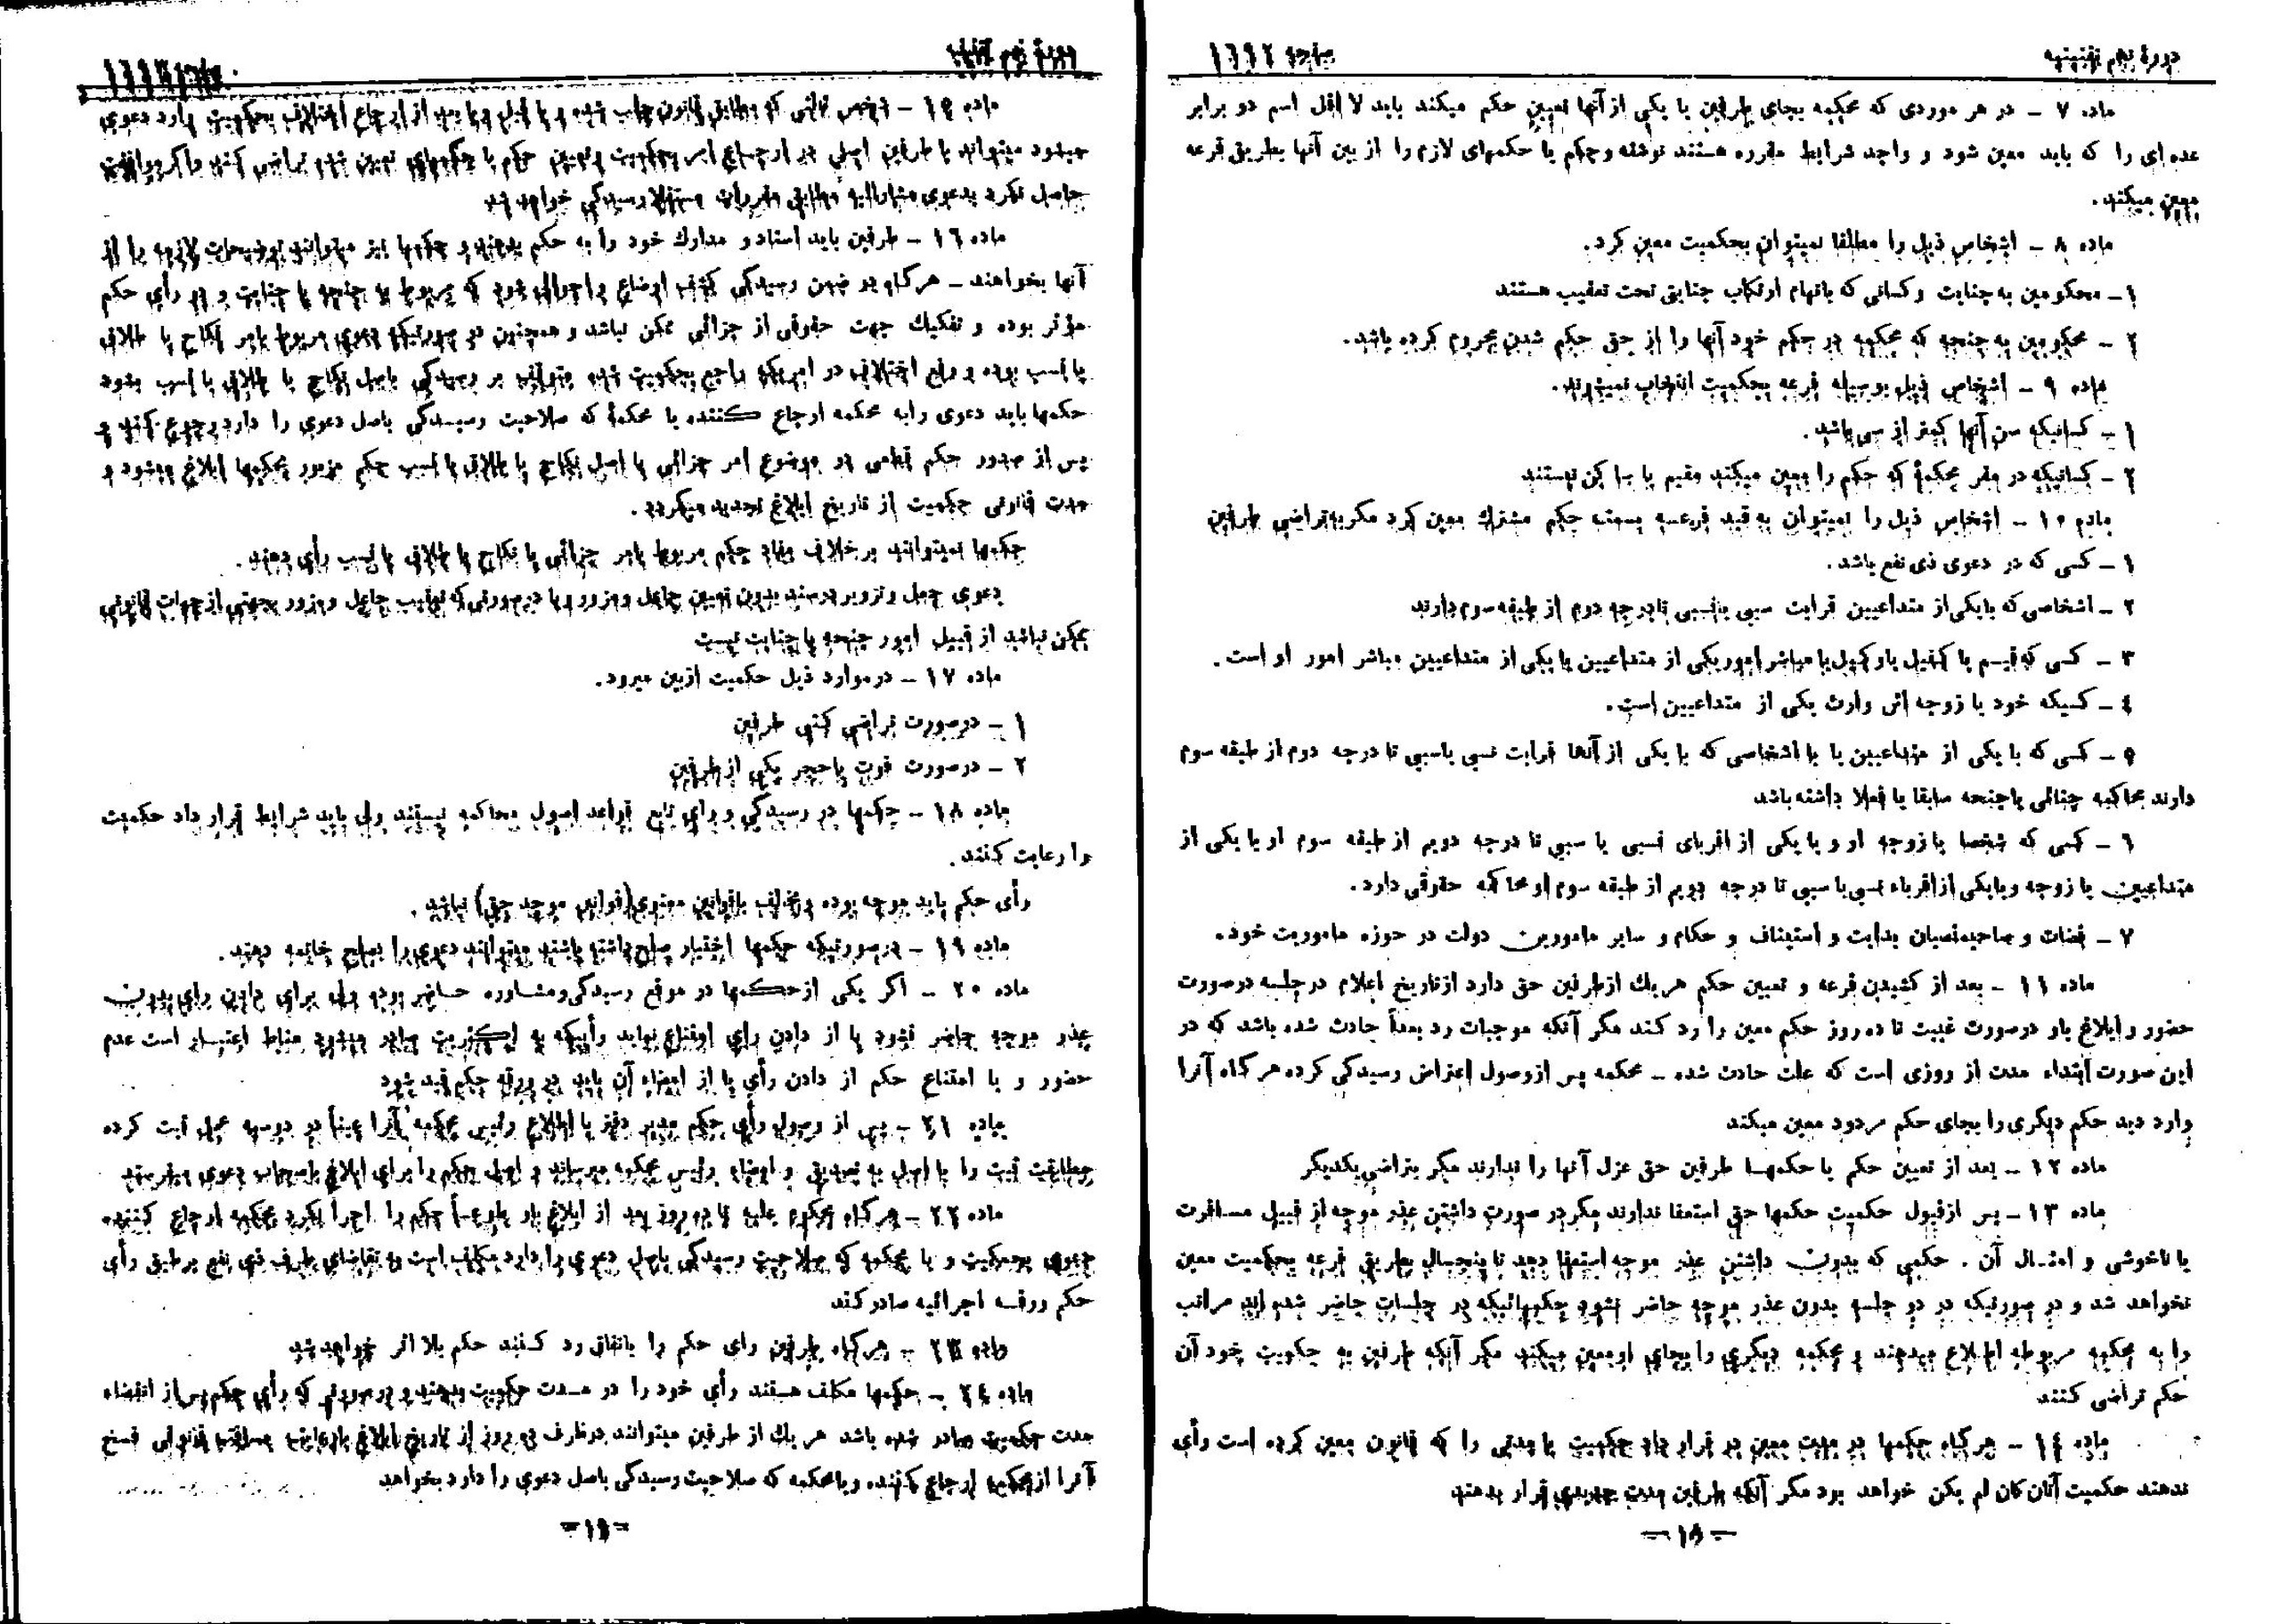 دورهٔ نهم تقنینیه
صفحه ۱٦۹۲
ماده ۷ – در هر موردی که محکمه بجای طرفین یا یکی از آنها تعیین حکم میکند باید لااقل اسم دو برابر
عده ای را که باید معین شود و واجد شرایط مقرره هستند نوشته و حکم یا حکمهای لازم را از بین آنها بطریق قرعه
معین میکند.
ماده ۸ – اشخاص ذیل را مطلقا نمیتوان بحکمیت معین کرد.
۱ – محکومین به جنایت و کسانی که باتهام ارتکاب جنایتی تحت تعقیب هستند
۲ – محکومین به جنحه که محکمه در حکم خود آنها را از حق حکم شدن محروم کرده باشد.
ماده ۹ – اشخاص ذیل بوسیله قرعه بحکمیت انتخاب نمیشوند.
۱ – کسانیکه سن آنها کمتر از سی باشد.
۲ – کسانیکه در مقر محکمهٔ که حکم را معین میکند مقیم یا ساکن نیستند
ماده ۱۰ – اشخاص ذیل را نمیتوان به قید قرعه بسمت حکم مشترك معین کرد مگر بتراضی طرفین
۱ – کسی که در دعوی ذی نفع باشد.
۲ – اشخاصی که با یکی از متداعیین قرابت سببی یا نسبی تا درجه دوم از طبقه سوم دارند
۳ – کسی که قیم یا کفیل یا وکیل یا مباشر امور یکی از متداعیین یا یکی از متداعیین مباشر امور او است.
٤ – کسیکه خود یا زوجه اش وارث یکی از متداعیین است.
٥ – کسی که با یکی از متداعیین یا با اشخاصی که با یکی از آنها قرابت نسبی یا سببی تا درجه دوم از طبقه سوم
دارند محاکمه جنائی یا جنحه سابقا یا فعلا داشته باشد
٦ – کسی که شخصا یا زوجه او و یا یکی از اقربای نسبی یا سببی تا درجه دویم از طبقه سوم او با یکی از
متداعیین یا زوجه و یا یکی از اقرباء نسبی یا سببی تا درجه دویم از طبقه سوم او محاکمه حقوقی دارد.
۷ – قضات و صاحبمنصبان بدایت و استیناف و حکام و سایر مامورین دولت در حوزه ماموریت خود.
ماده ۱۱ – بعد از کشیدن قرعه و تعیین حکم هر یك از طرفین حق دارد از تاریخ اعلام در جلسه در صورت
حضور و ابلاغ باو در صورت غیبت تا ده روز حکم معین را رد کند مگر آنکه موجبات رد بعداً حادث شده باشد که در
این صورت ابتداء مدت از روزی است که علت حادث شده – محکمه پس از وصول اعتراض رسیدگی کرده هر گاه آنرا
وارد دید حکم دیگری را بجای حکم مردود معین میکند
ماده ۱۲ – بعد از تعیین حکم یا حکمها طرفین حق عزل آنها را ندارند مگر بتراضی یکدیگر
ماده ۱۳ – پس از قبول حکمیت حکمها حق استعفا ندارند مگر در صورت داشتن عذر موجه از قبیل مسافرت
یا ناخوشی و امثال آن . حکمی که بدون داشتن عذر موجه استعفا دهد تا پنجسال بطریق قرعه بحکمیت معین
نخواهد شد و در صورتیکه در دو جلسه بدون عذر موجه حاضر نشود حکمهائیکه در جلسات حاضر شده اند مراتب
را به محکمه مربوطه اطلاع میدهند و محکمه دیگری را بجای او معین میکند مگر آنکه طرفین به حکمیت خود آن
حکم تراضی کنند
ماده ۱٤ – هر گاه حکمها در مدت معین در قرار داد حکمیت یا مدتی را که قانون معین کرده است رأی
ندهند حکمیت آنان کان لم یکن خواهد بود مگر آنکه طرفین مدت جدیدی قرار بدهند
– ۱۸ –
دورهٔ نهم تقنینیه
ماده ۱٥ – شخص ثالثی که مطابق قانون جلب شده و یا قبل و یا بعد از ارجاع اختلاف بحکمیت وارد دعوی
میشود میتواند با طرفین اصلی در ارجاع امر بحکمیت و تعیین حکم یا حکمهای تعیین شده تراضی کند و اگر موافقت
حاصل نگردد بدعوی مشارالیه مطابق مقررات مستقلا رسیدگی خواهد شد
ماده ۱٦ – طرفین باید اسناد و مدارك خود را به حکم بدهند و حکمها نیز میتوانند توضیحات لازمه را از
آنها بخواهند – هر گاه در ضمن رسیدگی کشف اوضاع و احوالی شود که مربوط به جنحه یا جنایت و در رأی حکم
مؤثر بوده و تفکیك جهت حقوقی از جزائی ممکن نباشد و همچنین در صورتیکه دعوی مربوط بامر نکاح یا طلاق
یا نسب بوده و رفع اختلاف در امریکه راجع بحکمیت شده متوقف بر رسیدگی باصل نکاح یا طلاق یا نسب بشود
حکمها باید دعوی را به محکمه ارجاع کننده یا محکمهٔ که صلاحیت رسیدگی باصل دعوی را دارد رجوع کنند و
پس از صدور حکم قطعی در موضوع امر جزائی یا اصل نکاح یا طلاق یا نسب حکم مزبور بحکمها ابلاغ میشود و
مدت قانونی حکمیت از تاریخ ابلاغ تجدید میگردد.
حکمها نمیتوانند بر خلاف مفاد حکم مربوط بامر جزائی یا نکاح یا طلاق یا نسب رأی دهند.
دعوی جعل و تزویر در سند بدون تعیین جاعل و مزور و یا در صورتی که تعقیب جاعل و مزور بجهتی از جهات قانونی
ممکن نباشد از قبیل امور جنحه یا جنایت نیست
ماده ۱۷ – در موارد ذیل حکمیت از بین میرود.
۱ – در صورت تراضی کتبی طرفین
۲ – در صورت فوت یا حجر یکی از طرفین
ماده ۱۸ – حکمها در رسیدگی و رأی تابع قواعد اصول محاکمه نیستند ولی باید شرایط قرار داد حکمیت
را رعایت کنند.
رأی حکم باید موجه بوده و مخالف با قوانین معنوی (قوانین موجد حق) نباشد.
ماده ۱۹ – در صورتیکه حکمها اختیار صلح داشته باشند میتوانند دعوی را بصلح خاتمه دهند.
ماده ۲۰ – اگر یکی از حکمها در موقع رسیدگی و مشاوره حاضر بوده ولی برای دادن رای بدون
عذر موجه حاضر نشود یا از دادن رای امتناع نماید رأییکه به اکثریت صادر میشود مناط اعتبار است عدم
حضور و یا امتناع حکم از دادن رأی یا از امضاء آن باید در ورقه حکم قید شود
ماده ۲۱ – پس از وصول رأی حکم مدیر دفتر با اطلاع رئیس محکمه آنرا عیناً در دوسیه عمل ثبت کرده
مطابقت ثبت را با اصل به تصدیق و امضاء رئیس محکمه میرساند و اصل حکم را برای ابلاغ باصحاب دعوی میفرستد
ماده ۲۲ – هر گاه محکوم علیه تا ده روز بعد از ابلاغ باو طوعاً حکم را اجرا نکرد محکمه ارجاع کننده
دعوی بحمکیت و یا محکمه که صلاحیت رسیدگی باصل دعوی را دارد مکلف است به تقاضای طرف ذی نفع بر طبق رأی
حکم ورقه اجرائیه صادر کند
ماده ۲۳ – هر گاه طرفین رای حکم را باتفاق رد کنند حکم بلا اثر خواهد شد
ماده ۲٤ – حکمها مکلف هستند رأی خود را در مدت حکمیت بدهند و در صورتی که رأی حکم پس از انقضاء
مدت حکمیت صادر شده باشد هر یك از طرفین میتوانند در ظرف ده روز از تاریخ ابلاغ با رعایت مسافت قانونی فسخ
آنرا از محکمه ارجاع کننده و یا محکمه که صلاحیت رسیدگی باصل دعوی را دارد بخواهد
– ۱۹ –